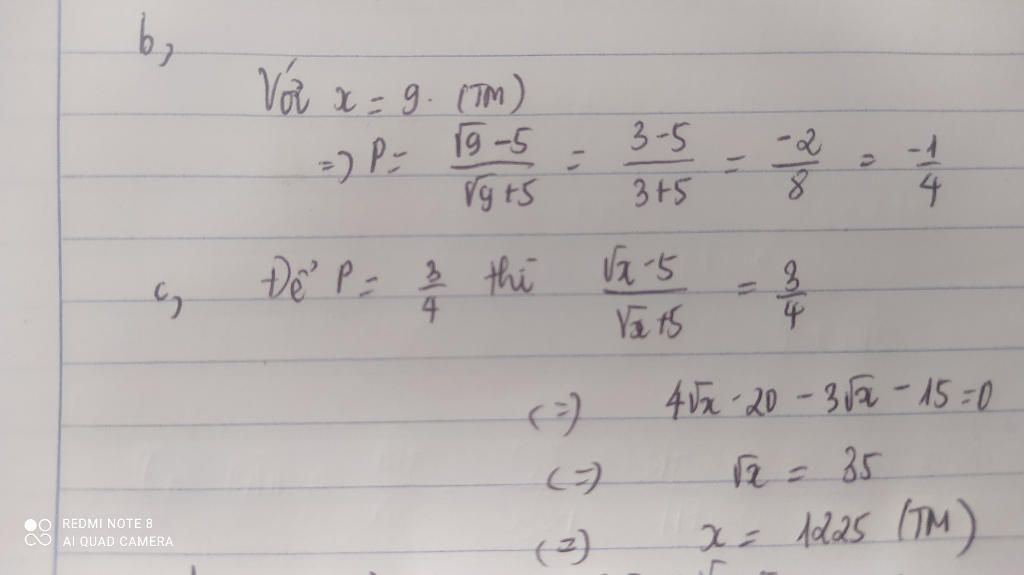 b,
Với x = 9. (TM)
=) P = \frac{\sqrt{9} - 5}{\sqrt{9} + 5} = \frac{3 - 5}{3 + 5} = \frac{-2}{8} = \frac{-1}{4}
c, Để P = \frac{3}{4} thì \frac{\sqrt{x} - 5}{\sqrt{x} + 5} = \frac{3}{4}
(=) 4\sqrt{x} - 20 - 3\sqrt{x} - 15 = 0
(=) \sqrt{x} = 35
(=) x = 1225 (TM)
REDMI NOTE 8
AI QUAD CAMERA